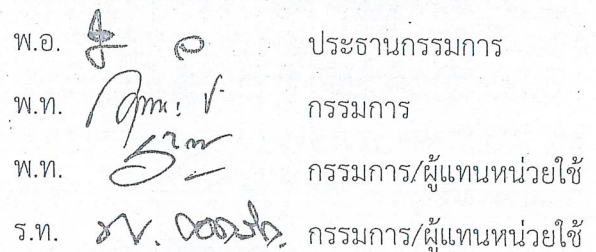 พ.อ. ประธานกรรมการ
พ.ท. กรรมการ
พ.ท. กรรมการ/ผู้แทนหน่วยใช้
ร.ท. กรรมการ/ผู้แทนหน่วยใช้